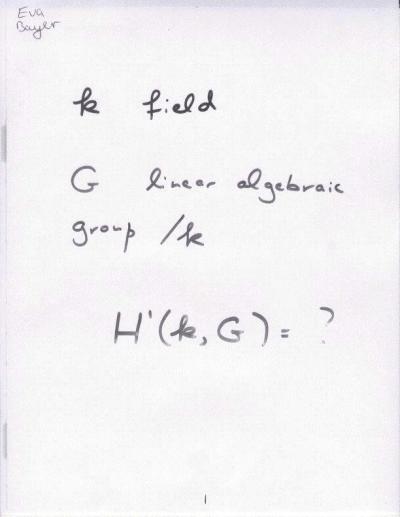 Eva
Bayer
k field
G linear algebraic
group /k
H¹(k, G) = ?
1